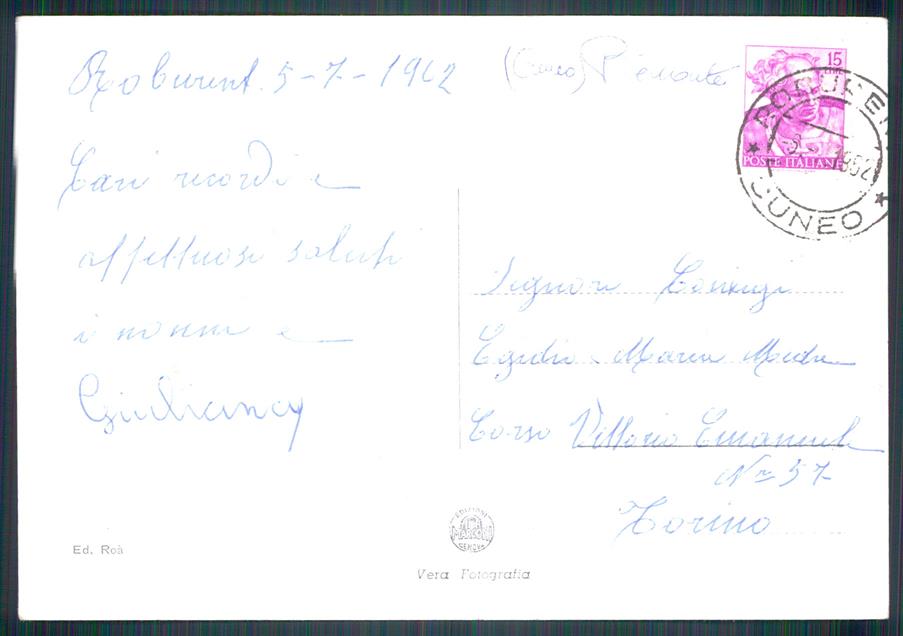 Roburent 5-7-1962 (Cuneo) Piemonte
Cari ricordi e
affettuosi saluti
i nonni e
Giuliana
15
LIRE
POSTE ITALIANE
ROBURENT
CUNEO
Signori
Egidio Maria
Corso Vittorio Emanuele
Nr 57
Torino
EDIZIONI
MARCONI
GENOVA
Ed. Roà
Vera Fotografia